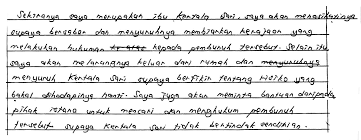 Sekiranya saya merupakan ibu Kentala Sari, saya akan menasihatinya
supaya bersabar dan menyuruhnya membiarkan kerajaan yang
melakukan hukuman kepada pembunuh tersebut. Selain itu
saya akan melarangnya keluar dari rumah dan menyuruhnya
menyuruh Kentala Sari supaya berfikir tentang risiko yang
bakal dihadapinya nanti. Saya juga akan meminta bantuan daripada
pihak istana untuk mencari dan menghukum pembunuh
tersebut supaya Kentala Sari tidak bertindak sendirian.